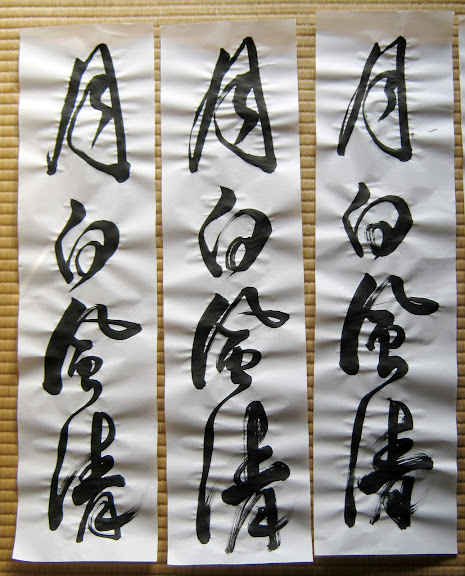 月白風清
月白風清
月白風清